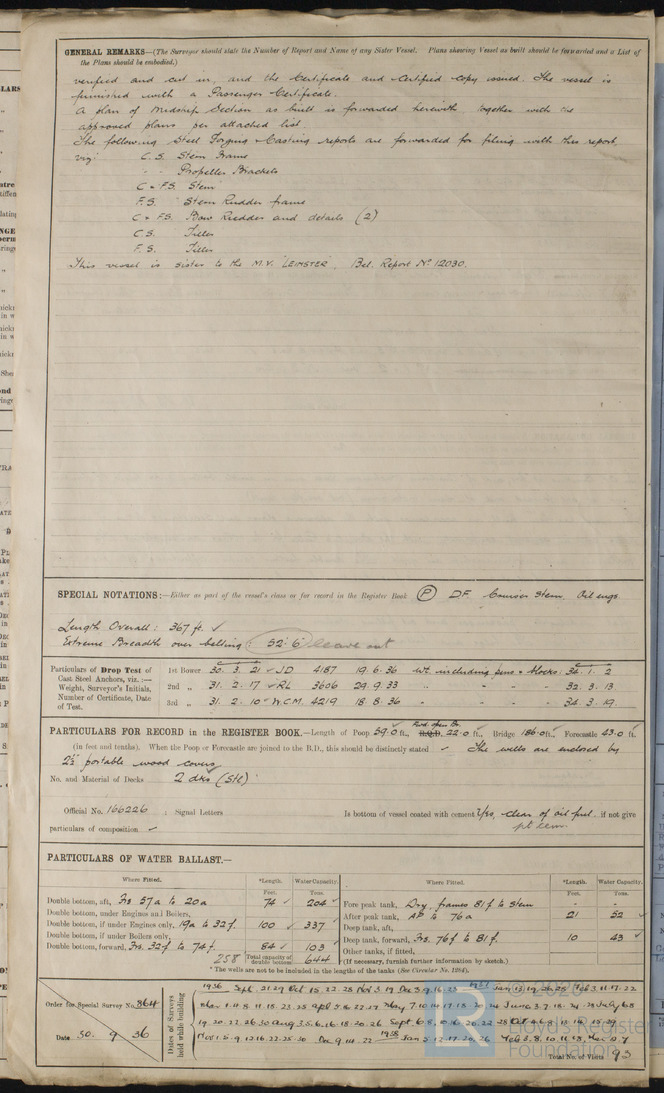 GENERAL REMARKS—(The Surveyor should state the Number of Report and Name of any Sister Vessel. Plans showing Vessel as built should be forwarded and a List of
the Plans should be embodied.)
verified and cut in, and the Certificate and Certified copy issued. The vessel is
furnished with a Passenger Certificate.
A plan of Midship Section as built is forwarded herewith together with the
approved plans per attached list
The following Steel Forging & Casting reports are forwarded for filing with this report,
viz:- C.S. Stern Frame
- - Propeller Brackets
C & F.S. Stem
F.S. Stern Rudder frame
C & F.S. Bow Rudder and details (2)
C.S. Tiller
F.S. Tiller
This vessel is sister to the M.V. 'LEINSTER' Bel. Report No 12030.
SPECIAL NOTATIONS:—Either as part of the vessel's class or for record in the Register Book (P) D.F. Cruiser Stern, Oil engs.
Length Overall: 367 ft. ✓
Extreme Breadth over belting: 52'.6" leave out
Particulars of Drop Test of
Cast Steel Anchors, viz.:—
Weight, Surveyor's Initials,
Number of Certificate, Date
of Test.
1st Bower 30. 3. 21 ✓ JD 4187 19.6.36 wt. including pins & blocks: 34. 1. 2
2nd „ 31. 2. 17 ✓ RL 3606 29.9.33 - - - - 32. 3. 13
3rd „ 31. 2. 10 ✓ W.C.M. 4219 18.8.36 - - - - 34. 3. 19
PARTICULARS FOR RECORD in the REGISTER BOOK.—Length of Poop 59.0 ft., R.Q.D. 22.0 ft., Bridge 186.0 ft., Forecastle 43.0 ft.
(in feet and tenths). When the Poop or Forecastle are joined to the B.D., this should be distinctly stated ✓ The wells are enclosed by
2½" portable wood covers
No. and Material of Decks 2 dks (Stl)
Official No. 166226 ; Signal Letters Is bottom of vessel coated with cement Yes, clear of oil fuel. if not give
particulars of composition ✓ pt cem.
PARTICULARS OF WATER BALLAST.—
Where Fitted. *Length. Water Capacity. Where Fitted. *Length. Water Capacity.
Feet. Tons. Feet. Tons.
Double bottom, aft, Frs 57a to 20a 74 ✓ 204 ✓ Fore peak tank, Dry, frames 81f to stem - -
Double bottom, under Engines and Boilers, After peak tank, AP to 76a 21 52 ✓
Double bottom, if under Engines only, 19a to 32f. 100 ✓ 337 ✓ Deep tank, aft,
Double bottom, if under Boilers only,
Double bottom, forward, Frs. 32f to 74f. 84 ✓ 103 ✓ Deep tank, forward, Frs. 76f to 81f. 10 43 ✓
Other tanks, if fitted,
258 Total capacity of double bottom 644 (If necessary, furnish further information by sketch.)
* The wells are not to be included in the lengths of the tanks (See Circular No. 1284).
Order for Special Survey No. 864
Date 30. 9. 36
Dates of Surveys held while building
1936 Sept. 21.29 Oct 15.22.28 Nov 3.19 Dec 3.9.16.23 1937 Jan 13.19.26.28 Feb 3.11.17.22
Total No. of Visits 93
© 2020
LR
Lloyd's Register
Foundation